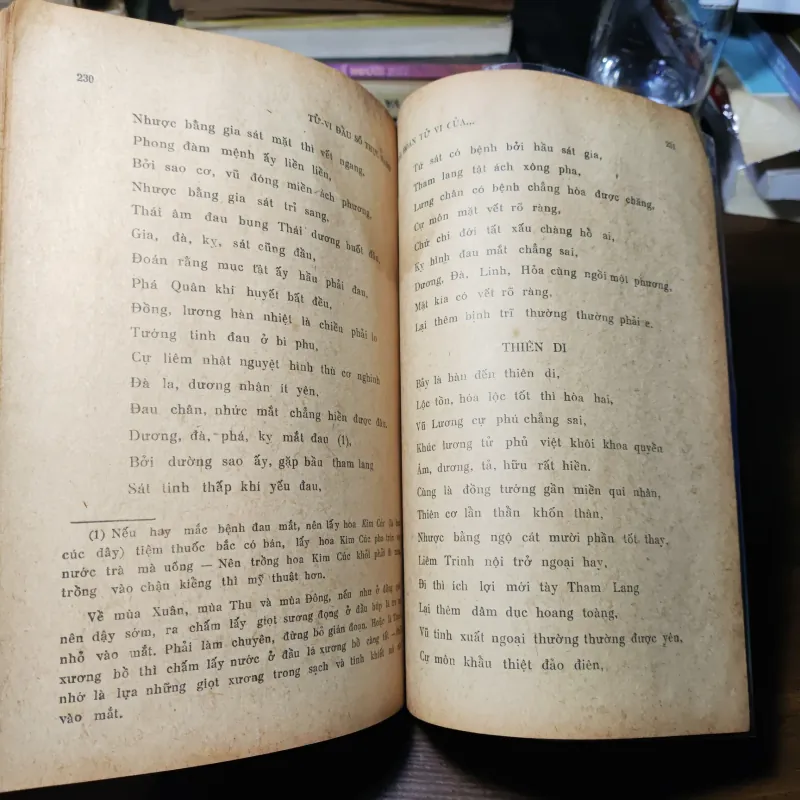 230
TỬ-VI ĐẦU SỐ
Nhược bằng gia sát mặt thì vết ngang,
Phong đàm mệnh ấy liền liền,
Bởi sao cơ, vũ đóng miền ách phương,
Nhược bằng gia sát trĩ sang,
Thái âm đau bụng Thái dương buốt đầu,
Gia, đà, kỵ, sát cũng đầu,
Đoán rằng mục tật ấy hầu phải đau,
Phá Quân khí huyết bất đều,
Đồng, lương hàn nhiệt là chiều phải lo
Tướng tinh đau ở bì phu,
Cự liêm nhật nguyệt hình thù cơ nghinh
Đà la, dương nhận ít yên,
Đau chân, nhức mắt chẳng hiền được đâu,
Dương, đà, phá, kỵ mắt đau (1),
Bởi dường sao ấy, gặp bầu tham lang
Sát tinh thấp khí yếu đau,
(1) Nếu hay mắc bệnh đau mắt, nên lấy hoa Kim Cúc
cúc dây) tiệm thuốc bắc có bán, lấy hoa Kim Cúc pha
nước trà mà uống — Nên trồng hoa Kim Cúc khỏi phải
trồng vào chậu kiểng thì mỹ thuật hơn.
Về mùa Xuân, mùa Thu và mùa Đông, nếu như ở
nên dậy sớm, ra chấm lấy giọt sương đọng ở đầu
nhỏ vào mắt. Phải làm chuyên, đừng bỏ gián đoạn. Hoặc là
xương bồ thì chấm lấy nước ở đầu lá xương bồ càng tốt
nhớ là lựa những giọt xương trong sạch và tinh khiết
vào mắt.
ĐOÁN TỬ VI CỦA...
231
Tứ sát có bệnh bởi hầu sát gia,
Tham lang tật ách xông pha,
Lưng chân có bệnh chẳng hòa được chăng,
Cự môn mặt vết rõ ràng,
Chữ chi đời tất xấu chàng hồ ai,
Kỵ hình đau mắt chẳng sai,
Dương, Đà, Linh, Hỏa cùng ngồi một phương,
Mặt kia có vết rõ ràng,
Lại thêm bịnh trĩ thường thường phải e.
THIÊN DI
Bầy là hàn đến thiên di,
Lộc tồn, hóa lộc tốt thì hòa hai,
Vũ Lương cự phú chẳng sai,
Khúc lương tử phủ việt khôi khoa quyền
Âm, dương, tả, hữu rất hiền.
Cùng là đồng tướng gần miền quí nhân,
Thiên cơ lần thần khốn thàn,
Nhược bằng ngộ cát mười phần tốt thay,
Liêm Trinh nội trở ngoại hay,
Đi thì ích lợi mới tày Tham Lang
Lại thêm dâm dục hoang toàng,
Vũ tinh xuất ngoại thường thường được yên,
Cự môn khẩu thiệt đảo điên,